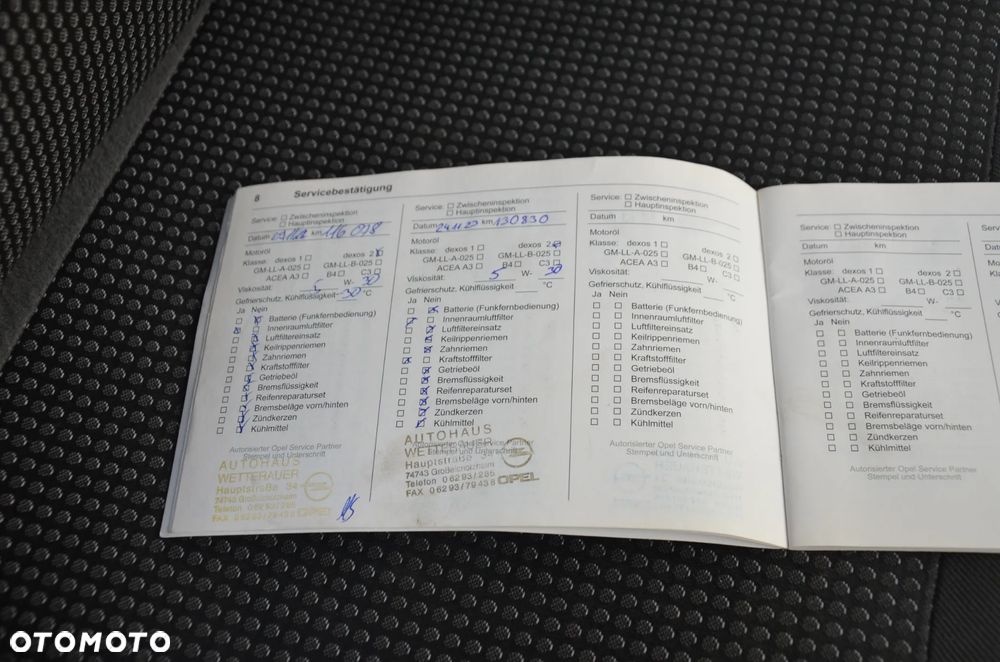 8 Servicebestätigung
Service: □ Zwischeninspektion
□ Hauptinspektion
Datum km 116 018
Motoröl
Klasse: dexos 1 □ dexos 2
GM-LL-A-025 □ GM-LL-B-025 □
ACEA A3 □ B4 □ C3 □
Viskosität: 5 W- 30
Gefrierschutz, Kühlflüssigkeit -30 °C
Ja Nein
Batterie (Funkfernbedienung)
Innenraumluftfilter
Luftfiltereinsatz
Keilrippenriemen
Zahnriemen
Kraftstofffilter
Getriebeöl
Bremsflüssigkeit
Reifenreparaturset
Bremsbeläge vorn/hinten
Zündkerzen
Kühlmittel
Autorisierter Opel Service Partner
Stempel und Unterschrift
AUTOHAUS
WETTERAUER
Hauptstraße 34
74743 Großeicholzheim
Telefon 06293/286
FAX 06293/79438 OPEL
Service: □ Zwischeninspektion
□ Hauptinspektion
Datum 24.11.23 km 130830
Motoröl
Klasse: dexos 1 □ dexos 2
GM-LL-A-025 □ GM-LL-B-025 □
ACEA A3 □ B4 □ C3 □
Viskosität: 5 W- 30
Gefrierschutz, Kühlflüssigkeit °C
Ja Nein
Batterie (Funkfernbedienung)
Innenraumluftfilter
Luftfiltereinsatz
Keilrippenriemen
Zahnriemen
Kraftstofffilter
Getriebeöl
Bremsflüssigkeit
Reifenreparaturset
Bremsbeläge vorn/hinten
Zündkerzen
Kühlmittel
Autorisierter Opel Service Partner
Stempel und Unterschrift
AUTOHAUS
WETTERAUER
Hauptstraße 34
74743 Großeicholzheim
Telefon 06293/286
FAX 06293/79438 OPEL
Service: □ Zwischeninspektion
□ Hauptinspektion
Datum km
Motoröl
Klasse: dexos 1 □ dexos 2 □
GM-LL-A-025 □ GM-LL-B-025 □
ACEA A3 □ B4 □ C3 □
Viskosität: W-
Gefrierschutz, Kühlflüssigkeit °C
Ja Nein
□ □ Batterie (Funkfernbedienung)
□ □ Innenraumluftfilter
□ □ Luftfiltereinsatz
□ □ Keilrippenriemen
□ □ Zahnriemen
□ □ Kraftstofffilter
□ □ Getriebeöl
□ □ Bremsflüssigkeit
□ □ Reifenreparaturset
□ □ Bremsbeläge vorn/hinten
□ □ Zündkerzen
□ □ Kühlmittel
Autorisierter Opel Service Partner
Stempel und Unterschrift
Service: □ Zwischeninspektion
□ Hauptinspektion
Datum km
Motoröl
Klasse: dexos 1 □ dexos 2 □
GM-LL-A-025 □ GM-LL-B-025 □
ACEA A3 □ B4 □ C3 □
Viskosität: W-
Gefrierschutz, Kühlflüssigkeit °C
Ja Nein
□ □ Batterie (Funkfernbedienung)
□ □ Innenraumluftfilter
□ □ Luftfiltereinsatz
□ □ Keilrippenriemen
□ □ Zahnriemen
□ □ Kraftstofffilter
□ □ Getriebeöl
□ □ Bremsflüssigkeit
□ □ Reifenreparaturset
□ □ Bremsbeläge vorn/hinten
□ □ Zündkerzen
□ □ Kühlmittel
Autorisierter Opel Service Partner
Stempel und Unterschrift
OTOMOTO